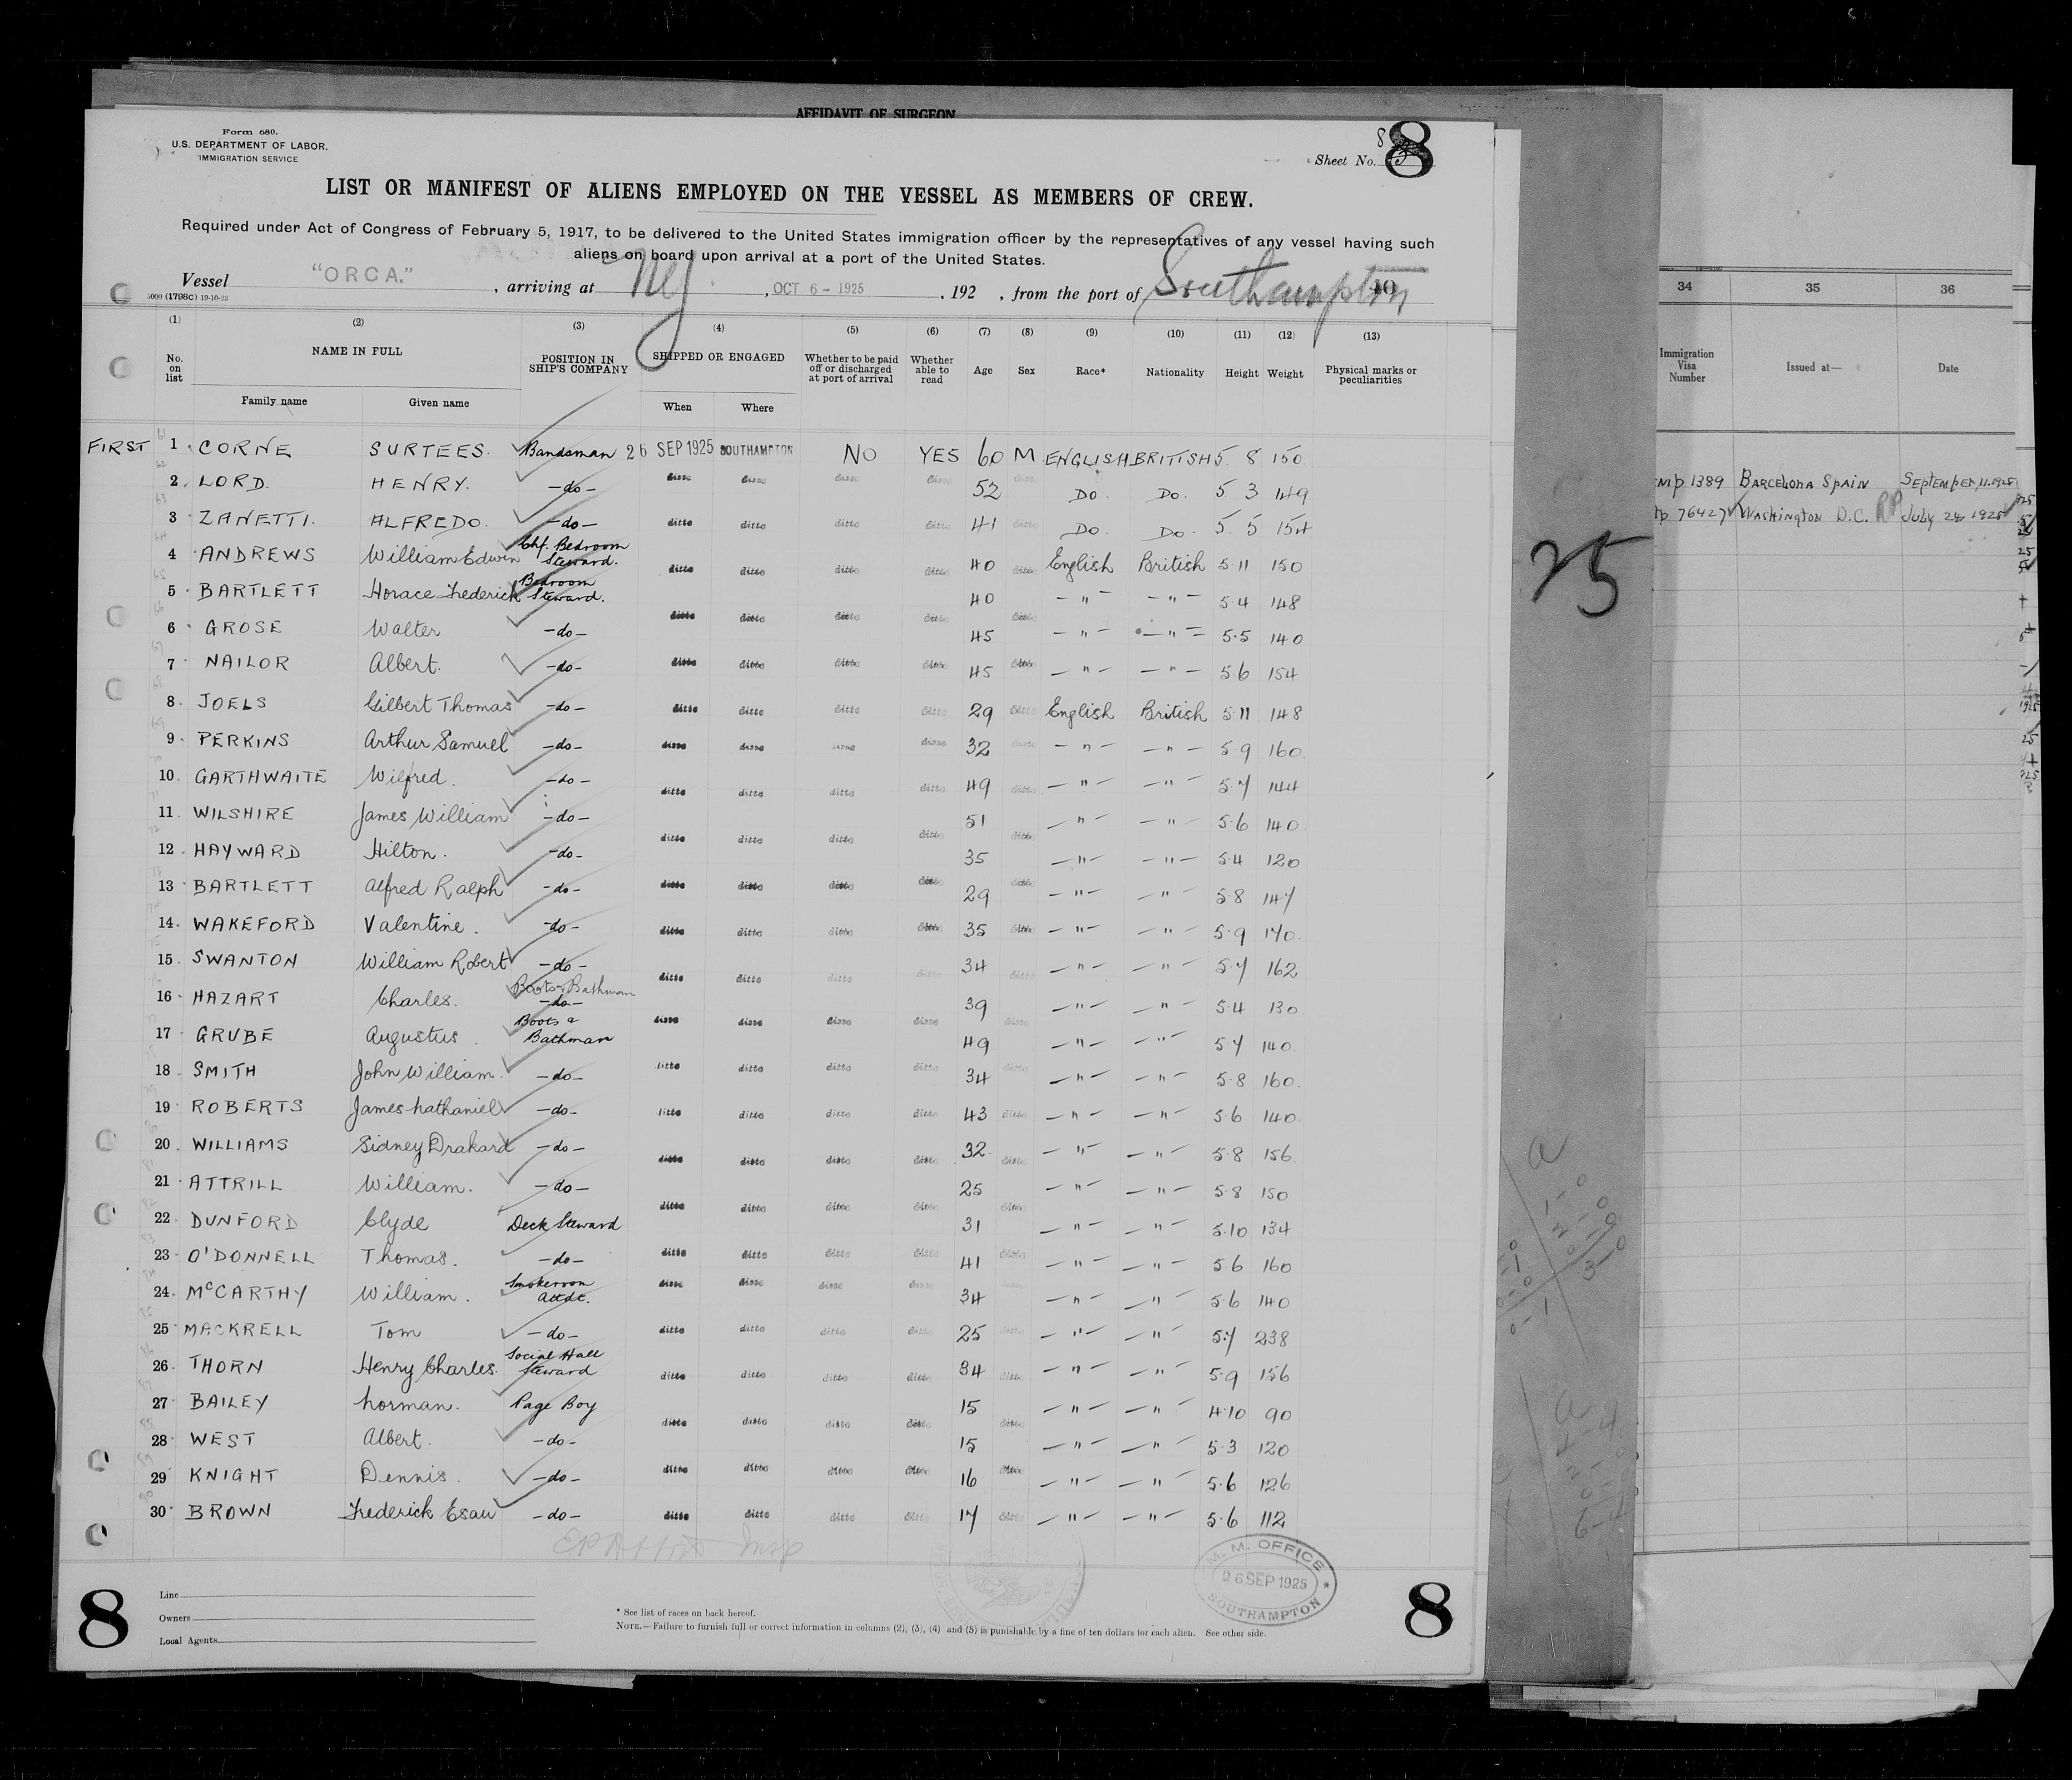 AFFIDAVIT OF SURGEON
Form 680.
U.S. DEPARTMENT OF LABOR.
IMMIGRATION SERVICE
Sheet No. 8
8
LIST OR MANIFEST OF ALIENS EMPLOYED ON THE VESSEL AS MEMBERS OF CREW.
Required under Act of Congress of February 5, 1917, to be delivered to the United States immigration officer by the representatives of any vessel having such
aliens on board upon arrival at a port of the United States.
Vessel "ORCA." , arriving at NY , OCT 6 - 1925 , 192 , from the port of Southampton
5000 (1798C) 19-10-23
(1) (2) (3) (4) (5) (6) (7) (8) (9) (10) (11) (12) (13)
No. on list NAME IN FULL POSITION IN SHIP'S COMPANY SHIPPED OR ENGAGED Whether to be paid off or discharged at port of arrival Whether able to read Age Sex Race* Nationality Height Weight Physical marks or peculiarities
Family name Given name When Where
FIRST 1 CORNE SURTEES. Bandsman 26 SEP 1925 SOUTHAMPTON NO YES 60 M ENGLISH BRITISH 5 8 150
2 LORD. HENRY. -do- ditto ditto ditto ditto 52 ditto DO. DO. 5 3 149
3 ZANETTI. ALFREDO. -do- ditto ditto ditto ditto 41 ditto DO. DO. 5 5 154
4 ANDREWS William Edwin Chf. Bedroom Steward. ditto ditto ditto ditto 40 ditto English British 5 11 150
5 BARTLETT Horace Frederick Bedroom Steward. 40 - " - - " - 5.4 148
6 GROSE Walter -do- ditto ditto ditto ditto 45 ditto - " - - " - 5.5 140
7 NAILOR Albert. -do- ditto ditto ditto ditto 45 ditto - " - - " - 5.6 154
8 JOELS Gilbert Thomas -do- ditto ditto ditto ditto 29 ditto English British 5.11 148
9 PERKINS Arthur Samuel -do- ditto ditto ditto ditto 32 ditto - " - - " - 5.9 160.
10 GARTHWAITE Wilfred. -do- ditto ditto ditto ditto 49 ditto - " - - " - 5.7 144
11 WILSHIRE James William -do- 51 - " - - " - 5.6 140.
12 HAYWARD Hilton. -do- ditto ditto ditto ditto 35 ditto - " - - " - 5.4 120
13 BARTLETT Alfred Ralph -do- ditto ditto ditto ditto 29 ditto - " - - " - 5.8 147
14 WAKEFORD Valentine. -do- ditto ditto ditto ditto 35 ditto - " - - " - 5.9 140.
15 SWANTON William Robert -do- 34 - " - - " - 5.7 162
16 HAZART Charles. Boots & Bathman -do- ditto ditto ditto ditto 39 ditto - " - - " - 5.4 130
17 GRUBE Augustus Boots & Bathman ditto ditto ditto ditto 49 ditto - " - - " - 5.7 140.
18 SMITH John William. -do- ditto ditto ditto ditto 34 ditto - " - - " - 5.8 160.
19 ROBERTS James Nathaniel -do- ditto ditto ditto ditto 43 ditto - " - - " - 5.6 140.
20 WILLIAMS Sidney Drakard -do- ditto ditto ditto ditto 32 ditto - " - - " - 5.8 156.
21 ATTRILL William. -do- 25 - " - - " - 5.8 150
22 DUNFORD Clyde Deck Steward ditto ditto ditto ditto 31 ditto - " - - " - 5.10 134
23 O'DONNELL Thomas. -do- ditto ditto ditto ditto 41 ditto - " - - " - 5.6 160
24 McCARTHY William. Smokeroom Attdt. ditto ditto ditto ditto 34 - " - - " - 5.6 140
25 MACKRELL Tom -do- ditto ditto ditto ditto 25 ditto - " - - " - 5.7 238
26 THORN Henry Charles. Social Hall Steward ditto ditto ditto ditto 34 ditto - " - - " - 5.9 156
27 BAILEY Norman. Page Boy 15 - " - - " - 4.10 90
28 WEST Albert. -do- ditto ditto ditto ditto 15 ditto - " - - " - 5.3 120
29 KNIGHT Dennis. -do- ditto ditto ditto ditto 16 ditto - " - - " - 5.6 126
30 BROWN Frederick Esau -do- ditto ditto ditto ditto 17 ditto - " - - " - 5.6 112
M. M. OFFICE
26 SEP 1925
SOUTHAMPTON
8
8
Line
Owners
Local Agents
* See list of races on back hereof.
NOTE.—Failure to furnish full or correct information in columns (2), (3), (4) and (5) is punishable by a fine of ten dollars for each alien. See other side.
25
34 35 36
Immigration Visa Number Issued at— Date
1389 BARCELONA SPAIN SEPTEMBER, 11. 1925
76427 WASHINGTON D.C. JULY 1925